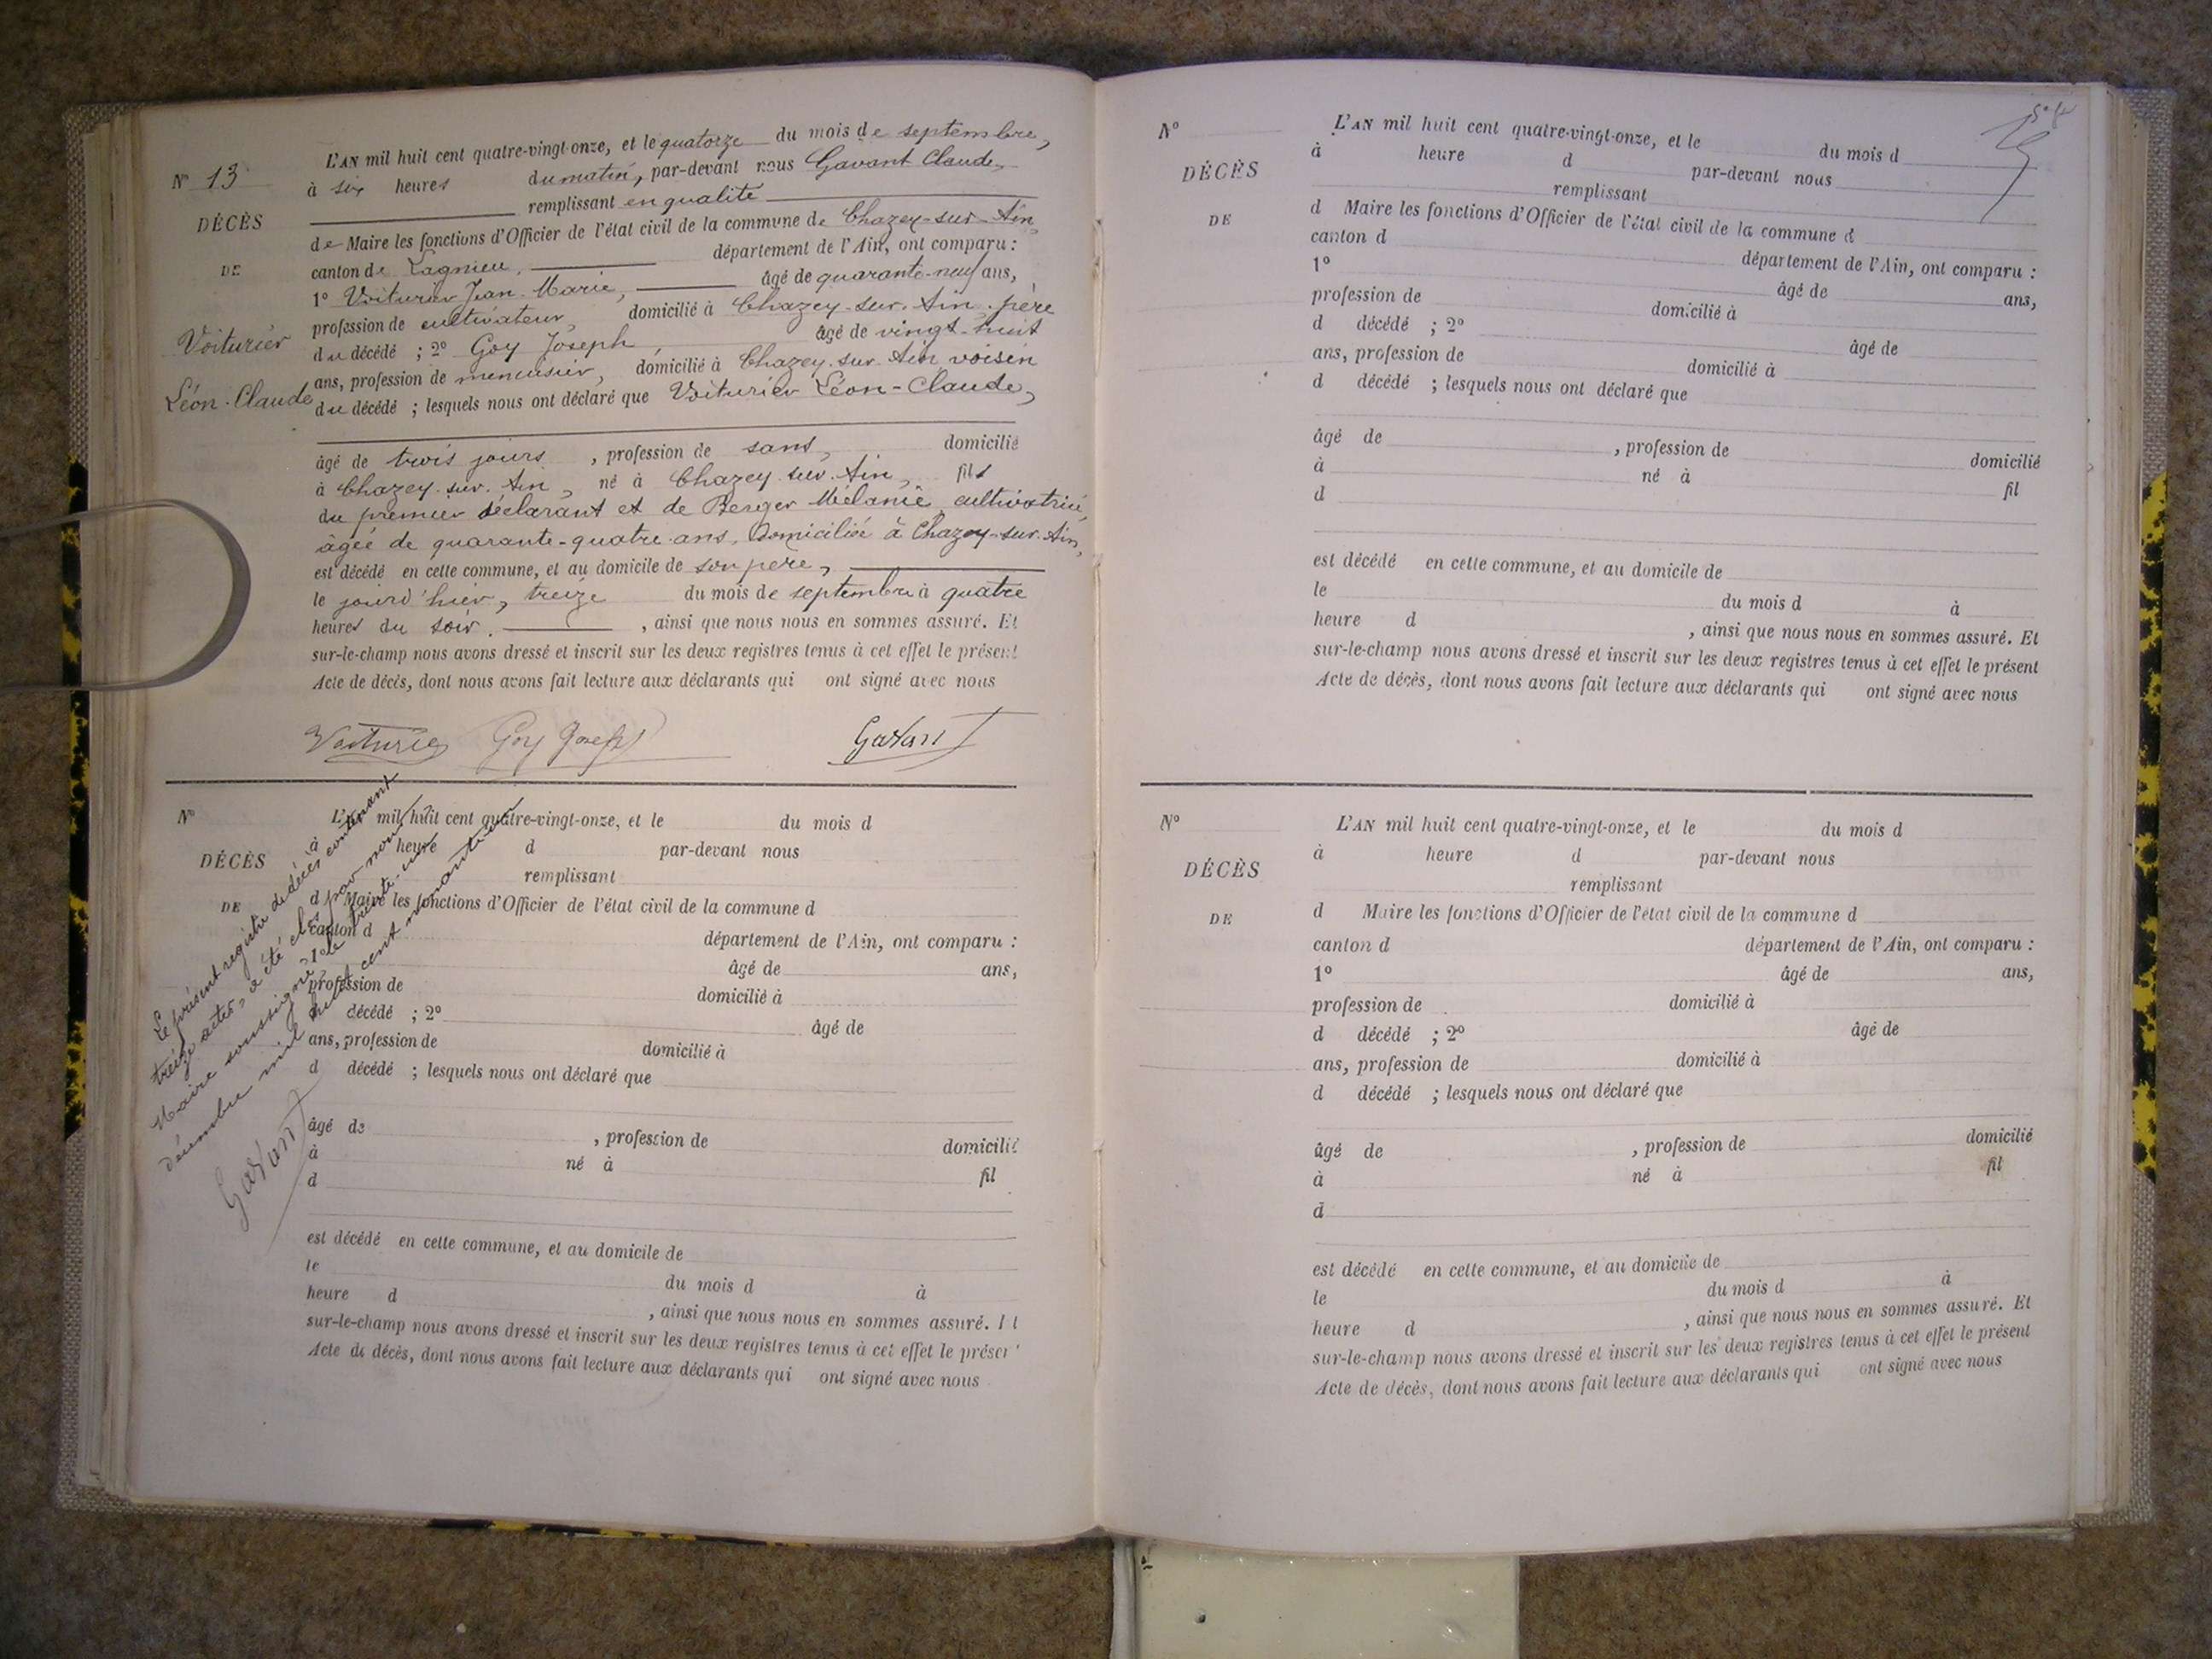 L'AN mil huit cent quatre-vingt-onze, et le quatorze du mois de septembre,
N° 13
à six heures du matin, par-devant nous Gavant Claude,
remplissant en qualité
DÉCÈS
de Maire les fonctions d'Officier de l'état civil de la commune de Chazey-sur-Ain,
DE
canton de Lagnieu, département de l'Ain, ont comparu :
1° Voiturier Jean-Marie, âgé de quarante-neuf ans,
profession de cultivateur, domicilié à Chazey-sur-Ain, père
Voiturier
du décédé ; 2° Goy Joseph, âgé de vingt-huit
ans, profession de menuisier, domicilié à Chazey-sur-Ain voisin
Léon-Claude
du décédé ; lesquels nous ont déclaré que Voiturier Léon-Claude,
âgé de trois jours, profession de sans, domicilié
à Chazey-sur-Ain, né à Chazey-sur-Ain, fils
du premier déclarant et de Berger Mélanie, cultivatrice,
âgée de quarante-quatre ans, domiciliée à Chazey-sur-Ain,
est décédé en cette commune, et au domicile de son père,
le jourd'hier, treize du mois de septembre à quatre
heures du soir. , ainsi que nous nous en sommes assuré. Et
sur-le-champ nous avons dressé et inscrit sur les deux registres tenus à cet effet le présent
Acte de décès, dont nous avons fait lecture aux déclarants qui ont signé avec nous
Voiturier Goy Joseph Gavant
N°
L'AN mil huit cent quatre-vingt-onze, et le du mois d
à heure d par-devant nous
DÉCÈS
remplissant
DE
d Maire les fonctions d'Officier de l'état civil de la commune d
canton d département de l'Ain, ont comparu :
âgé de ans,
profession de domicilié à
d décédé ; 2° âgé de
ans, profession de domicilié à
d décédé ; lesquels nous ont déclaré que
âgé de , profession de domicilié
à né à fil
d
est décédé en cette commune, et au domicile de
le du mois d à
heure d , ainsi que nous nous en sommes assuré. Et
sur-le-champ nous avons dressé et inscrit sur les deux registres tenus à cet effet le présent
Acte de décès, dont nous avons fait lecture aux déclarants qui ont signé avec nous
Le présent registre de décès contenant
treize actes, a été clos par nous
Maire soussigné, le trente-un
décembre mil huit cent
Gavant
N°
L'AN mil huit cent quatre-vingt-onze, et le du mois d
à heure d par-devant nous
DÉCÈS
remplissant
DE
d Maire les fonctions d'Officier de l'état civil de la commune d
canton d département de l'Ain, ont comparu :
1° âgé de ans,
profession de domicilié à
d décédé ; 2° âgé de
ans, profession de domicilié à
d décédé ; lesquels nous ont déclaré que
âgé de , profession de domicilié
à né à fil
d
est décédé en cette commune, et au domicile de
le du mois d à
heure d , ainsi que nous nous en sommes assuré. Et
sur-le-champ nous avons dressé et inscrit sur les deux registres tenus à cet effet le présent
Acte de décès, dont nous avons fait lecture aux déclarants qui ont signé avec nous
N°
L'AN mil huit cent quatre-vingt-onze, et le du mois d
à heure d par-devant nous
DÉCÈS
remplissant
DE
d Maire les fonctions d'Officier de l'état civil de la commune d
canton d département de l'Ain, ont comparu :
1° âgé de ans,
profession de domicilié à
d décédé ; 2° âgé de
ans, profession de domicilié à
d décédé ; lesquels nous ont déclaré que
âgé de , profession de domicilié
à né à fil
d
est décédé en cette commune, et au domicile de
le du mois d à
heure d , ainsi que nous nous en sommes assuré. Et
sur-le-champ nous avons dressé et inscrit sur les deux registres tenus à cet effet le présent
Acte de décès, dont nous avons fait lecture aux déclarants qui ont signé avec nous